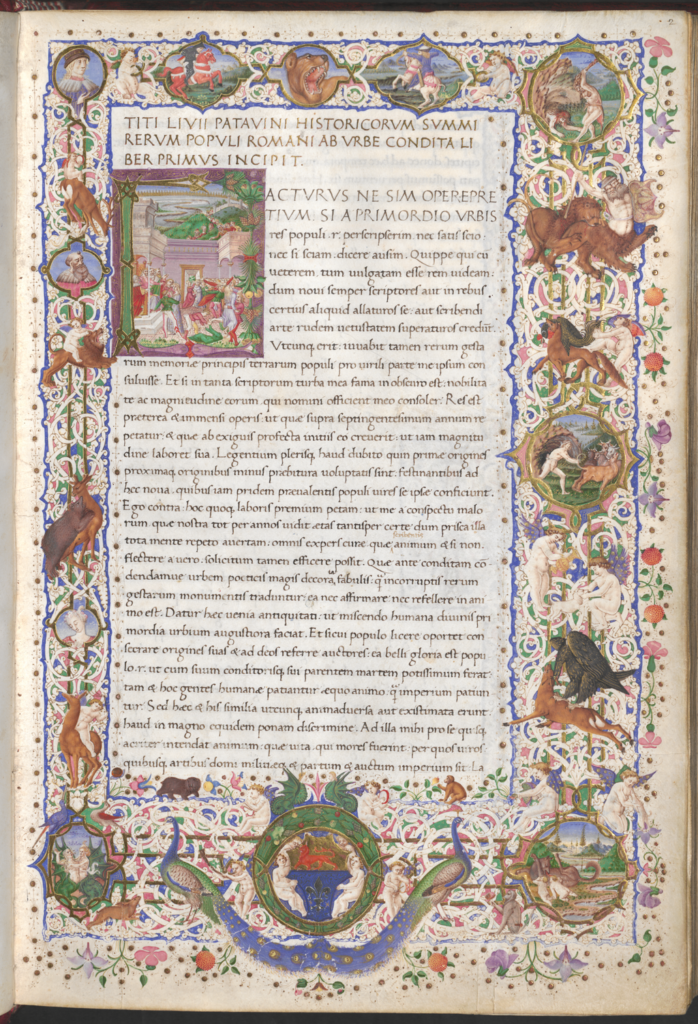 2
TITI LIVII PATAVINI HISTORICORVM SVMMI
RERVM POPVLI ROMANI AB VRBE CONDITA LI
BER PRIMVS INCIPIT.
ACTVRVS NE SIM OPEREPRE
TIVM SI A PRIMORDIO VRBIS
res populi .r. perscripserim nec satis scio
nec si sciam dicere ausim. Quippe qui cū
ueterem tum uulgatam esse rem uideam:
dum noui semper scriptores aut in rebus
certius aliquid allaturos se: aut scribendi
arte rudem uetustatem superaturos credūt.
Vtcunq; erit: iuuabit tamen rerum gesta
rum memorie principis terrarum populi pro uirili parte me ipsum con
suluisse. Et si in tanta scriptorum turba mea fama in obscuro est: nobilita
te ac magnitudine eorum qui nomini officient meo consoler. Res est
preterea & immensi operis: ut que supra septingentesimum annum re
petatur: & que ab exiguis profecta initiis eo creuerit: ut iam magnitu
dine laboret sua. Legentium plerisq; haud dubito quin prime origines
proximaq; originibus minus prebitura uoluptatis sint: festinantibus ad
hec noua: quibus iam pridem preualentis populi uires se ipse conficiunt.
Ego contra: hoc quoq; laboris premium petam: ut me a conspectu malo
rum que nostra tot per annos uidit etas tantisper certe dum prisca illa
tota mente repeto auertam: omnis expers cure que animum & si non
flectere a uero: solicitum tamen efficere possit. Que ante conditam cō
dendamue urbem poeticis magis decora fabulis: q̄ incorruptis rerum
gestarum monumentis traduntur: ea nec affirmare nec refellere in ani
mo est. Datur hec uenia antiquitati: ut miscendo humana diuinis pri
mordia urbium augustiora faciat. Et si cui populo licere oportet con
secrare origines suas & ad deos referre auctores: ea belli gloria est popu
lo .r. ut cum suum conditorisq; sui parentem martem potissimum ferat:
tam & hoc gentes humane patiantur equo animo: q̄ imperium patiun
tur. Sed hec & his similia utcunq; animaduersa aut existimata erunt:
haud in magno equidem ponam discrimine. Ad illa mihi pro se quisq;
acriter intendat animum: que uita: qui mores fuerint: per quos uiros:
quibusq; artibus domi militieq; & partum & auctum imperium sit. La